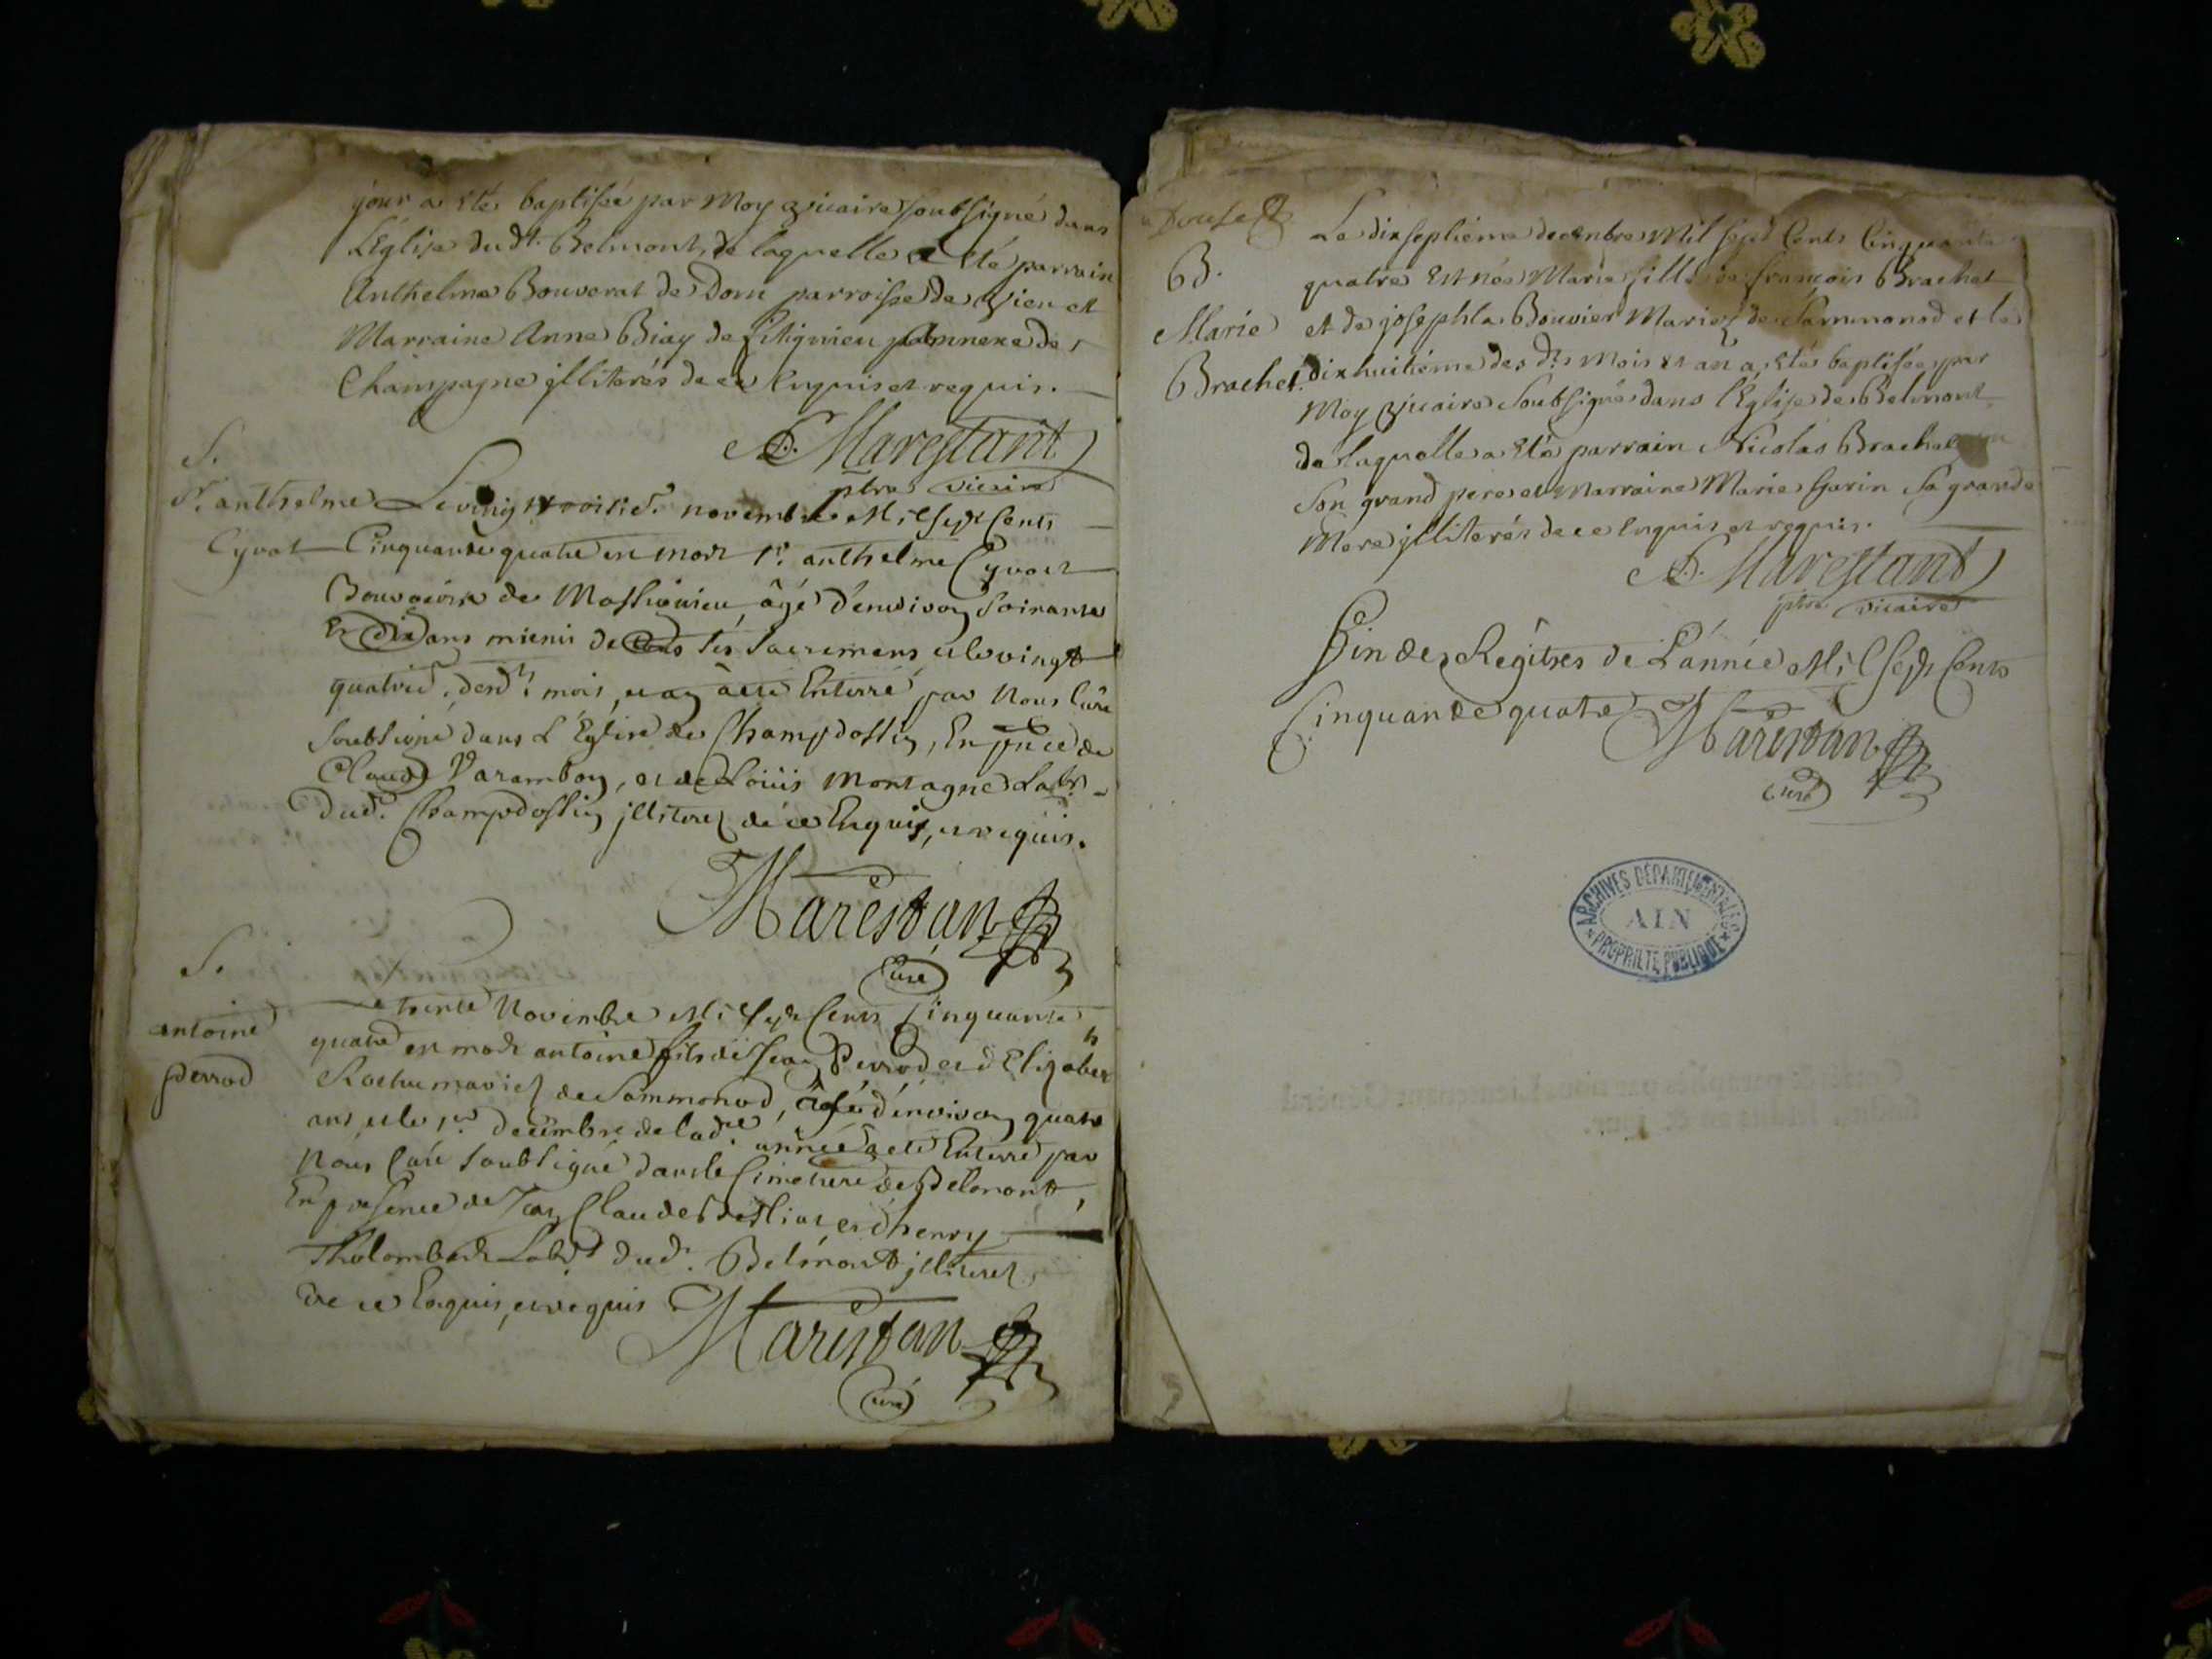 jour a eté baptisée par Moy vicaire soubsigné dans
L'Eglise dudt. Belmont, de laquelle a eté parrain
Anthelme Bouverat de Don parroisse de Vieu et
Marraine Anne Biay de Litignieu annexe de
Champagne illiterés de ce Enquis et requis.
Marestant
ptre vicaire
S.
Sr. anthelme
Cyvot
Le vingt troisie. novembre Mil Sept Cents
Cinquante quatre est mort sr. anthelme Cyvot
Bourgeois de Massignieu, âgé d'environ soixante
Et dix ans munis de tous ses sacremens et le vingt
quatrie. desdts. mois, et an a eté Enterré par Nous Curé
soubsigné dans L'Eglise de Champdossin, En pnce de
Claude Varambon, et de Loüis Montagne Labrs
dud. Champdossin illiterez de ce Enquis, et requis.
Marestan
Curé
S.
antoine
perrod
Le trente Novembre Mil Sept Cents Cinquante
quatre est mort antoine fils de Jean Perrod et d'Elizabeth
mariez de Sammonod, âgé d'environ quatre
ans et le 1er. decembre de lade. année a eté Enterré par
Nous Curé soubsigné dans le Cimetiere de Belmont,
En presence de Jean Claude et d'henry
Tholombert Labrs dud. Belmont illiterez
de ce Enquis, et requis
Marestan
Curé
B.
Marie
Brachet.
Le dix septieme decenbre Mil sept Cents Cinquante
quatre Est née Marie fille de françois Brachet
et de josephla Bouvier Mariez de Sammonod et le
dix huitiéme des dts mois et an a eté baptisée par
Moy Vicaire Soubsigné dans l'Eglise de Belmont
de laquelle a eté parrain Nicolas Brachet
Son grand pere et Marraine Marie Garin Sa grande
Mere illiterés de ce Enquis et requis.
Marestant
ptre vicaire
Fin des Regitres de L'année Mil Sept Cents
Cinquante quatre Marestan
Curé
ARCHIVES DÉPARTEMENTALES
AIN
PROPRIÉTÉ PUBLIQUE